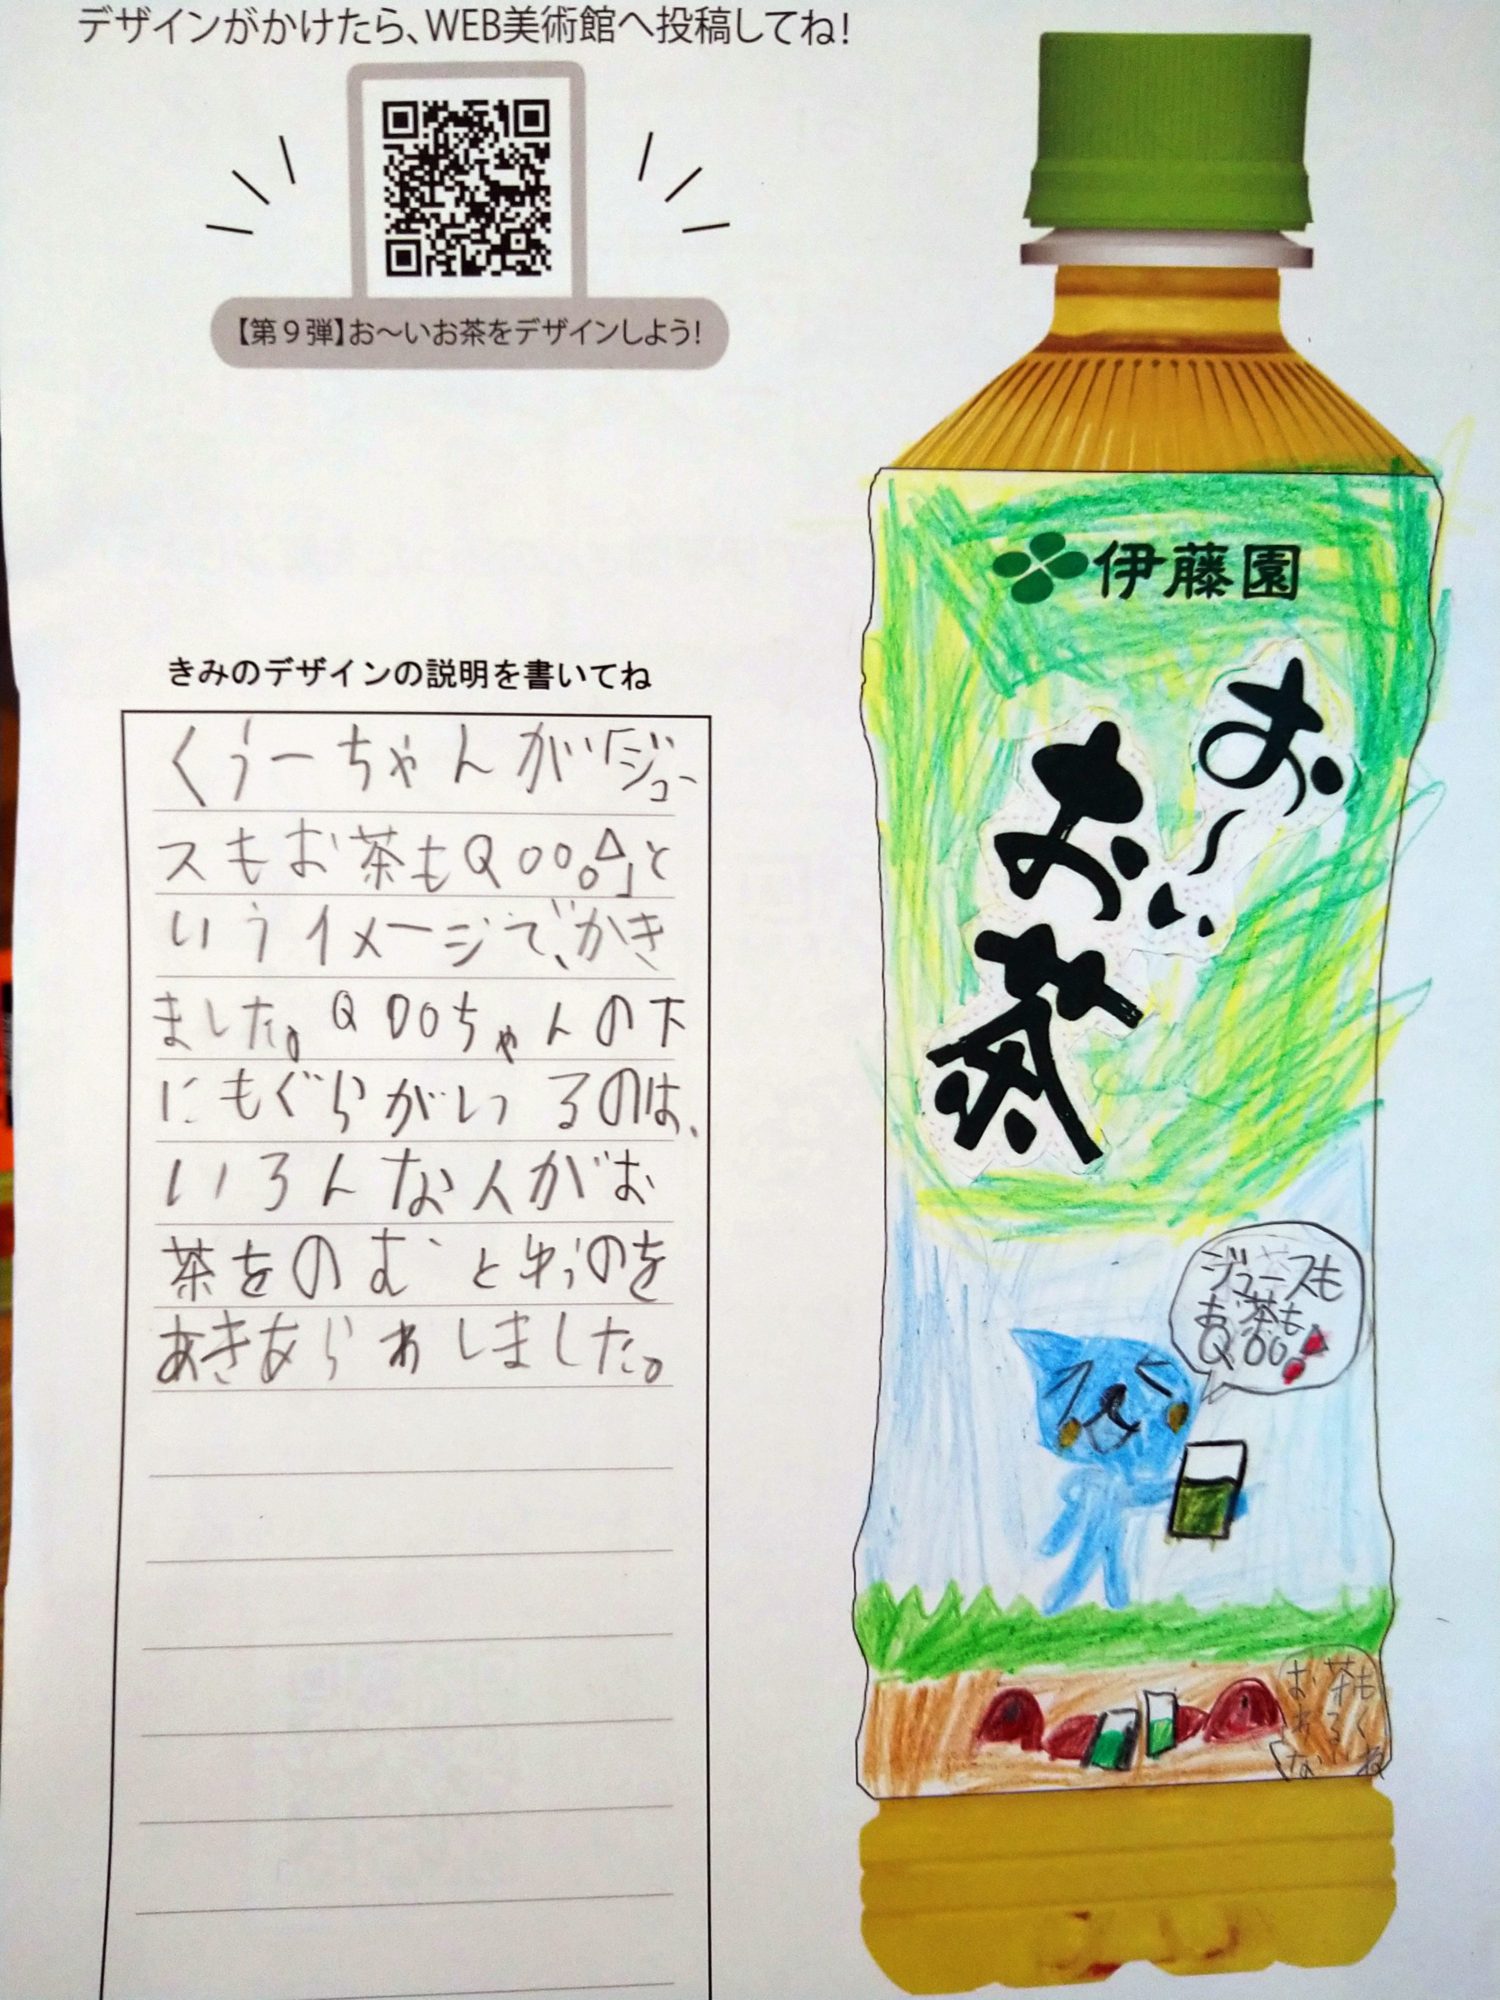 デザインがかけたら、WEB美術館へ投稿してね!
【第9弾】お～いお茶をデザインしよう!
きみのデザインの説明を書いてね
くぅーちゃんが「ジュー
スもお茶もQoo!」と
いうイメージで、かき
ました。QOOちゃんの下
にもぐらがいるのは、
いろんな人がお
茶をのむとゆうのを
あきあらわしました。
伊藤園
お～い
お茶
ジュースも
お茶も
QOO!
お茶も
わるく
ないね